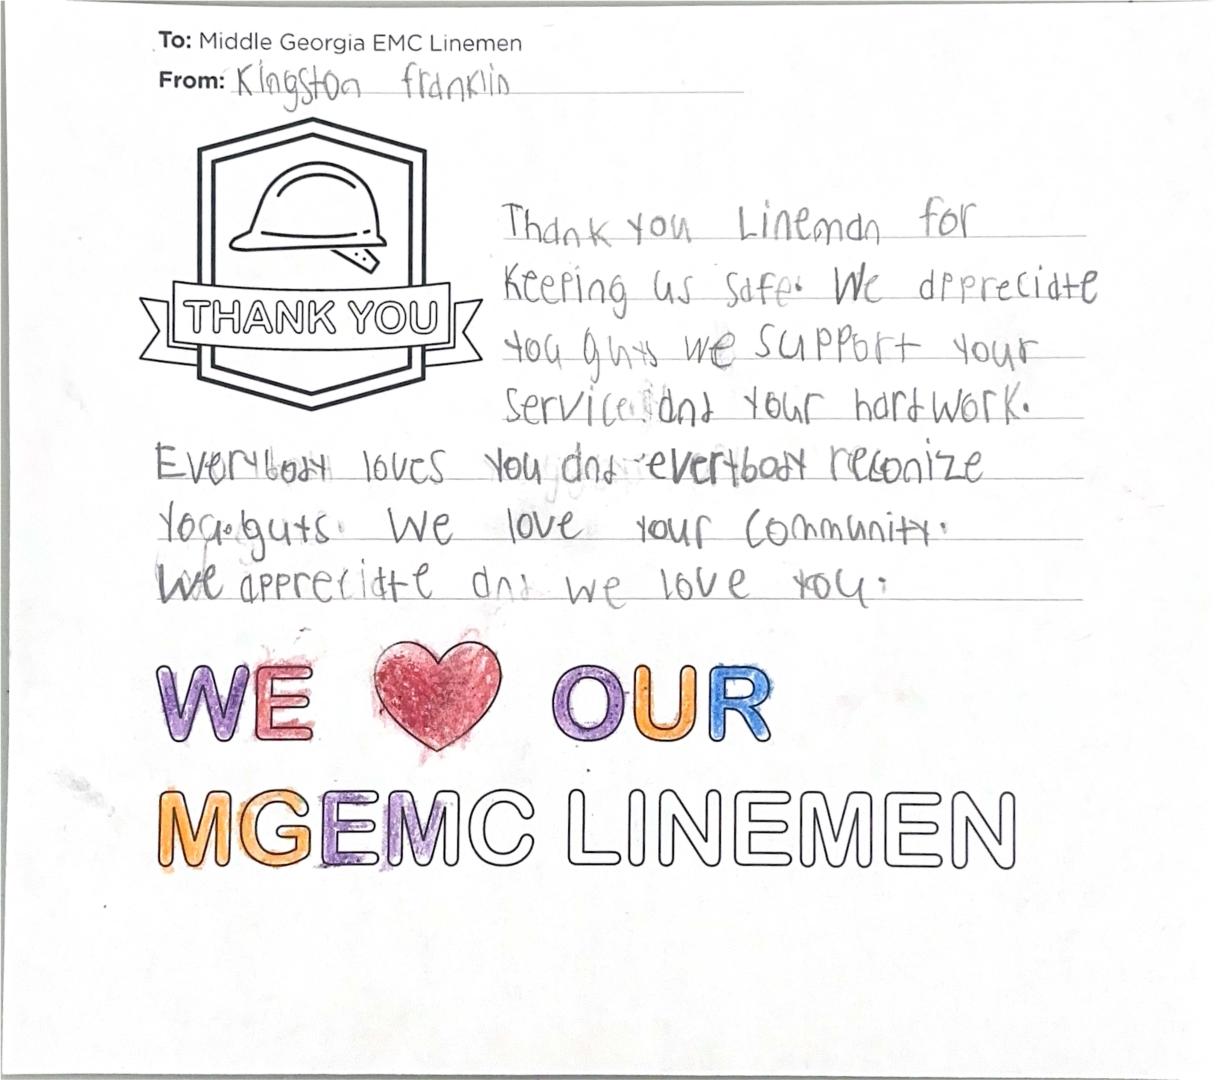 To: Middle Georgia EMC Linemen
From: Kingston franklin
THANK YOU
Thank you Lineman for
Keeping us safe. We appreciate
you guys we support your
service and your hard work.
Everybody loves you and everybody reconize
you guys. We love your community.
We appreciate and we love you.
WE OUR
MGEMC LINEMEN